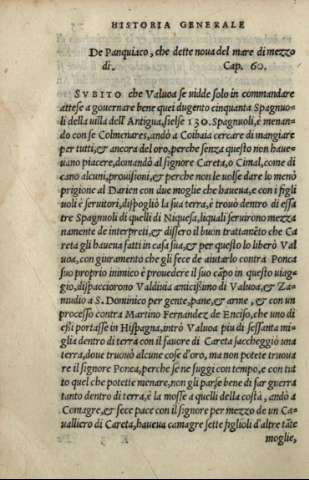 HISTORIA GENERALE
De Panquiaco, che dette noua del mare di mezzo
di. Cap. 60.
SVBITO che Valuoa se uidde solo in commandare
attese a gouernare bene quei dugento cinquanta Spagnuo-
li della uilla dell'Antigua, sielse 130. Spagnuoli, è menan-
do con se Colmenares, andò a Coibaia cercare di mangiare
per tutti, & ancora del oro, perche senza questo non haue-
uano piacere, domandò al signore Careta, o Cimal, come di
cano alcuni, prouisioni, & perche non le uolse dare lo menò
prigione al Darien con due moglie che haueua, e con i figli
uoli è seruitori, dispogliò la sua terra, è trouò dentro di essa
tre Spagnuoli di quelli di Niquesa, liquali seruirono mezza
namente de interpreti, & dissero il buon trattanẽto che Ca
reta gli haueua fatti in casa sua, & per questo lo liberò Val
uoa, con giuramento che gli fece de aiutarlo contra Ponca
suo proprio inimico è prouedere il suo cãpo in questo uiag-
gio, dispacciorono Valdiuia amicissimo di Valuoa, & Za-
mudio a S. Dominico per gente, pane, & arme, & con un
processo contra Martino Fernandez de Enciso, che uno di
essi portasse in Hispagna, intrò Valuoa piu di sessanta mi-
glia dentro di terra con il fauore di Careta saccheggiò una
terra, doue truouò alcune cose d'oro, ma non potete truoua
re il signore Ponca, perche se ne fuggi con tempo, e con tut
to quel che potette menare, non gli parse bene di far guerra
tanto dentro di terra, è la mosse a quelli della costa, andò a
Comagre, & fece pace con il signore per mezzo de un Ca-
ualliero di Careta, haueua camagre sette figlioli d'altre tãte
moglie,